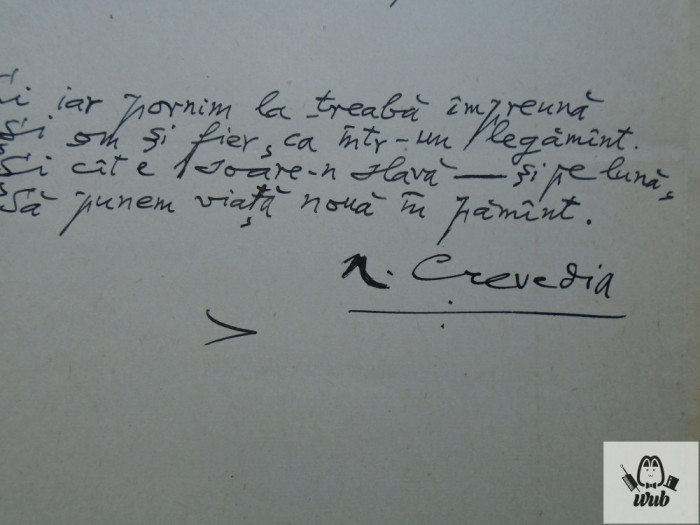 Și iar pornim la treabă împreună
Și om și fier, ca într-un legămînt.
Și cît e soare-n slavă — și pe lună,
Să punem viață nouă în pămînt.
N. Crevedia
wub